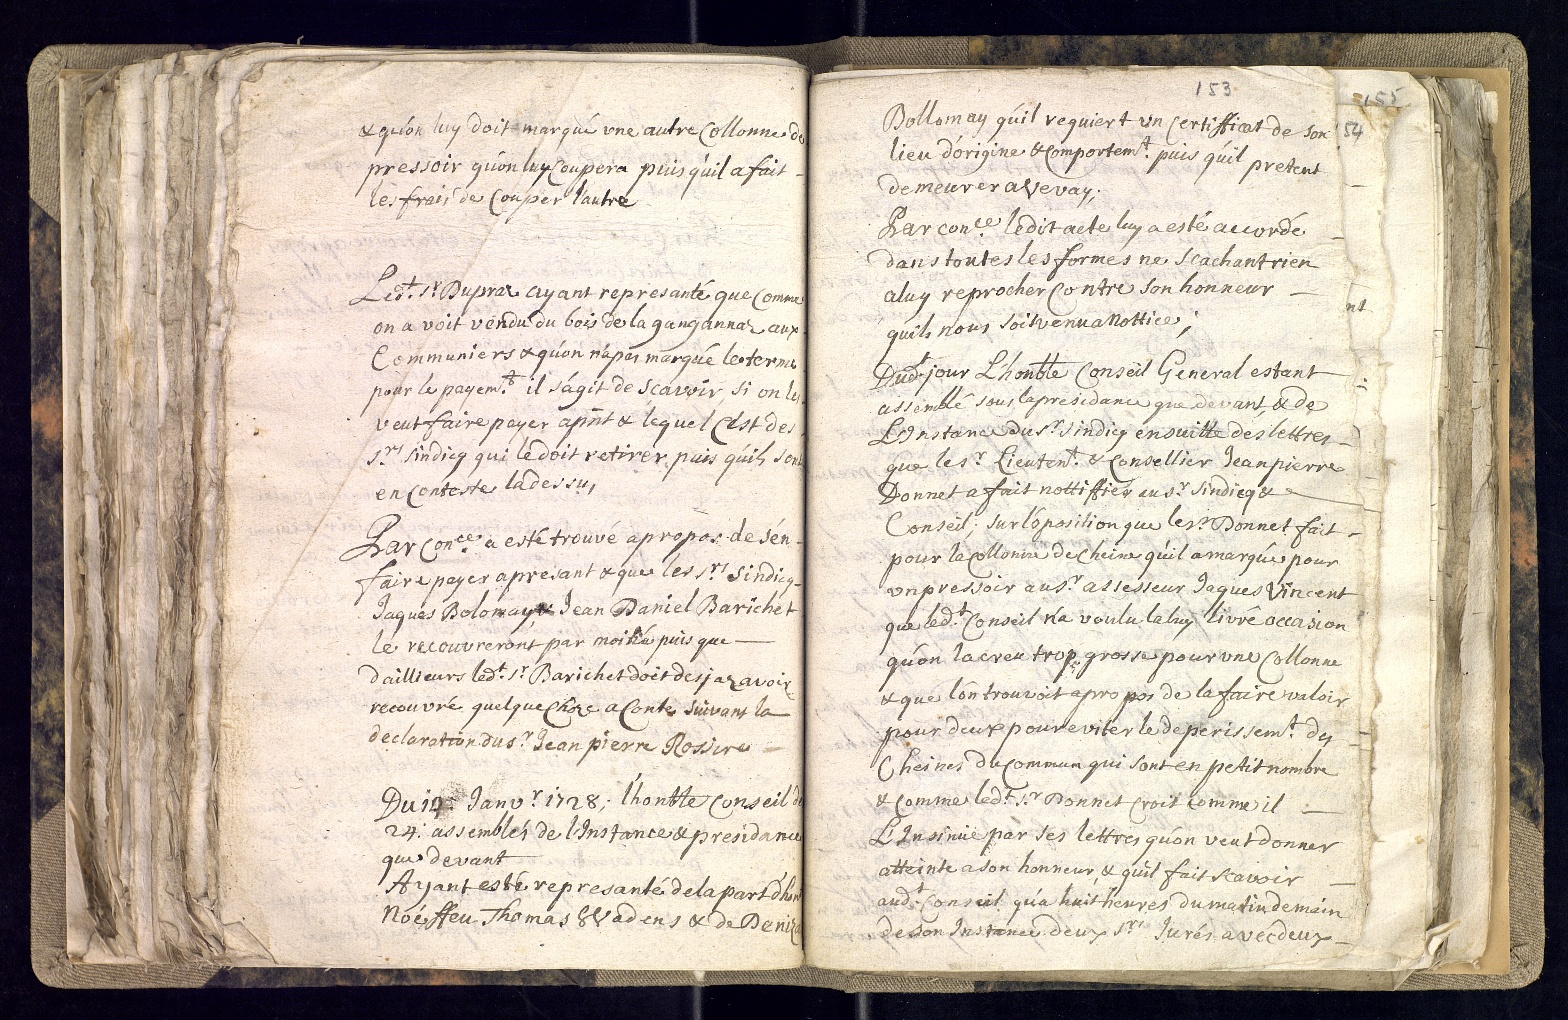 & qu'on luy doit marqué vne autre Collonne de
pressoir qu'on luy Coupera puis qu'il a fait
les frais de Couper l'autre
Led.t S.r Dupraz ayant represanté que Comme
on a voit vendu du bois de la gangannaz aux
Communiers & qu'on n'a pas marqué le terme
pour le payem.t il s'agit de scavoir si on les
veut faire payer aprnt & lequel C'est des
S.rs Sindicq qui le doit retirer puis qu'ils sont
en Conteste la dessu,
Par Con.ce a esté trouvé a propos de s'en
faire payer apresant & que les S.rs Sindicq
Jaques Bolomay & Jean Daniel Barichet
le recouvreront par moitié puis que
d'aillieurs led.t S.r Barichet doit desjaz avoir
recouvré quelque Chôze a Conte suivant la
declaration du S.r Jean pierre Rossier
Du 12 Janv.r 1728, l'honble Conseil de
24. assemblés de l'Instance & presidance
que devant
Ayant esté represanté de la part d'hon
Noé ffeu Thomas Wadens & de
153
155
Bollomay qu'il requiert vn Certifficat de son
54
lieu d'origine & comportem.t puis qu'il pretent
demeurer a Vevay;
Par con.ce ledit acte luy a esté accordé
dans toutes les formes ne scachant rien
a luy reprocher Contre son honneur
nt
qu'ils nous soit venu a Nottice;
Dud.t jour L'honble Conseil General estant
assemblé sous la presidance que devant & de
L'Instance du S.r Sindicq ensuitte des lettres
que le S.r Lieuten.t & Consellier Jean pierre
Donnet a fait nottiffier au S.r Sindicq &
Conseil, sur l'oposition que le S.r Donnet fait
pour la Collonne de Cheine qu'il a marqué pour
vn pressoir au S.r assesseur Jaques Vincent
que led.t Conseil n'a voulu la luy livré occasion
qu'on la creu trop grosse pour vne Collonne
& que l'on trouvoit apropos de la faire valoir
pour deux pour eviter le deperissem.t des
Cheines du Commun qui sont en petit nombre
& Comme led.t S.r Donnet Croit Comme il
L'Insinue par ses lettres qu'on veut donner
atteinte a son honneur, & qu'il fait scavoir
aud.t Conseil qu'a huit heures du matin demain
de son Instance deux S.rs Jurés avec deux